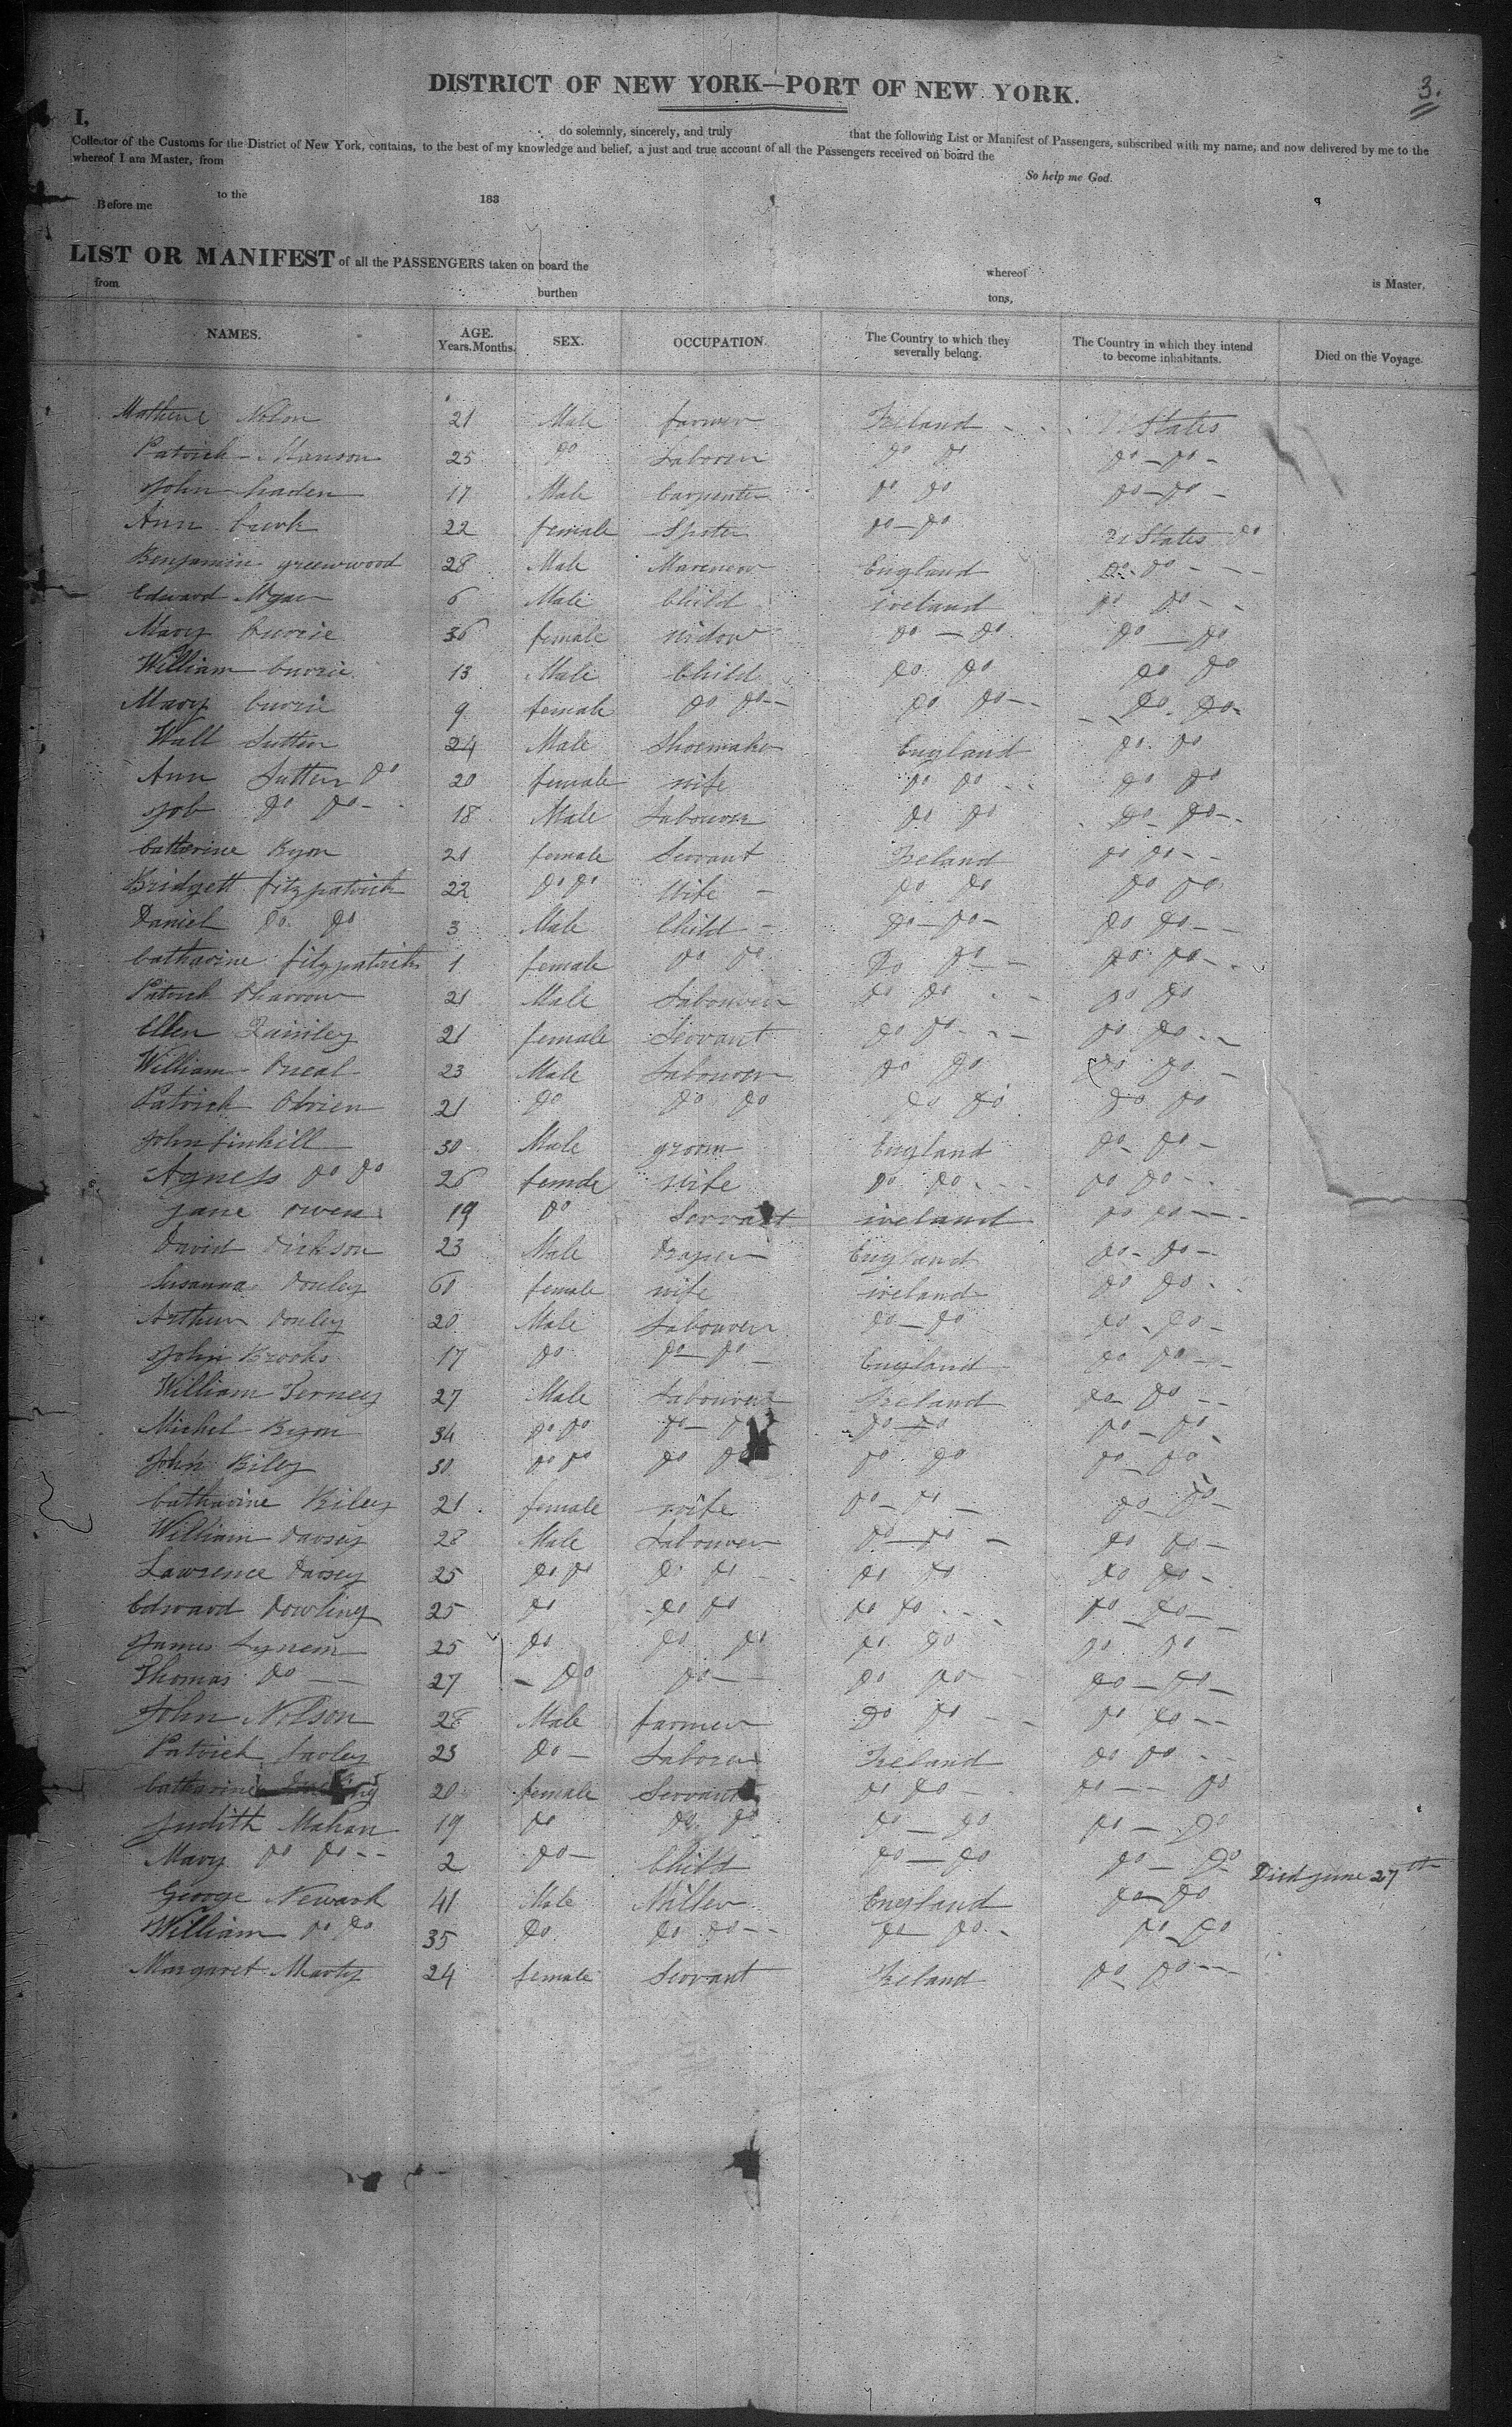 3.
DISTRICT OF NEW YORK—PORT OF NEW YORK.
I, do solemnly, sincerely, and truly that the following List or Manifest of Passengers, subscribed with my name, and now delivered by me to the
Collector of the Customs for the District of New York, contains, to the best of my knowledge and belief, a just and true account of all the Passengers received on board the
whereof I am Master, from
So help me God.
to the 183
Before me
LIST OR MANIFEST of all the PASSENGERS taken on board the whereof is Master,
from burthen tons,
NAMES. AGE. Years. Months. SEX. OCCUPATION. The Country to which they severally belong. The Country in which they intend to become inhabitants. Died on the Voyage.
21 Male farmer Ireland States
Patrick Manson 25 Do Laborer Do Do Do Do
John 17 Male Carpenter Do Do Do Do
Ann 22 female Do Do States Do
Benjamin greenwood 28 Male England Do Do
Edward 6 Male Child ireland Do Do
Mary Currie 36 female widow Do Do Do Do
William Currie 13 Male Child Do Do Do Do
Mary Currie 9 female Do Do Do Do Do Do
Sutton 24 Male Shoemaker England Do Do
Ann Sutton Do 20 female wife Do Do Do Do
Job Do Do 18 Male Labourer Do Do Do Do
Catherine Ryon 21 female Servant Ireland Do Do
Bridgett fitzpatrick 22 Do Do Wife Do Do Do Do
Daniel Do Do 3 Male Child Do Do Do Do
Catharine fitzpatrick 1 female Do Do Do Do Do Do
Patrick 21 Male Labourer Do Do Do Do
Ellen 21 female Servant Do Do Do Do
William Oneal 23 Male Labourer Do Do Do Do
Patrick Obrien 21 Do Do Do Do Do Do Do
John 30 Male groom England Do Do
Agness Do Do 26 female wife Do Do Do Do
jane owens 19 Do Servant ireland Do Do
David Dickson 23 Male Draper England Do Do
Susanna Donley 60 female wife ireland Do Do
Arthur Donley 20 Male Labourer Do Do Do Do
John Brooks 17 Do Do Do England Do Do
William Terney 27 Male Labourer Ireland Do Do
Michel Ryon 34 Do Do Do Do Do Do Do Do
John Riley 30 Do Do Do Do Do Do Do Do
Catharine Riley 21 female wife Do Do Do Do
William Darsey 28 Male Labourer Do Do Do Do
Lawrence Darsey 25 Do Do Do Do Do Do Do Do
Edward Dowling 25 Do Do Do Do Do Do Do
James 25 Do Do Do Do Do Do Do
Thomas Do 27 Do Do Do Do Do Do
John Nolson 28 Male farmer Do Do Do Do
Patrick 23 Do Laborer Ireland Do Do
Catharine 20 female Servant Do Do Do Do
Judith Mahan 19 Do Do Do Do Do Do Do
Mary Do Do 2 Do Child Do Do Do Do Died june 27th
George Newark 41 Male Miller England Do Do
William Do Do 35 Do Do Do Do Do Do Do
Margaret Marty 24 female Servant Ireland Do Do